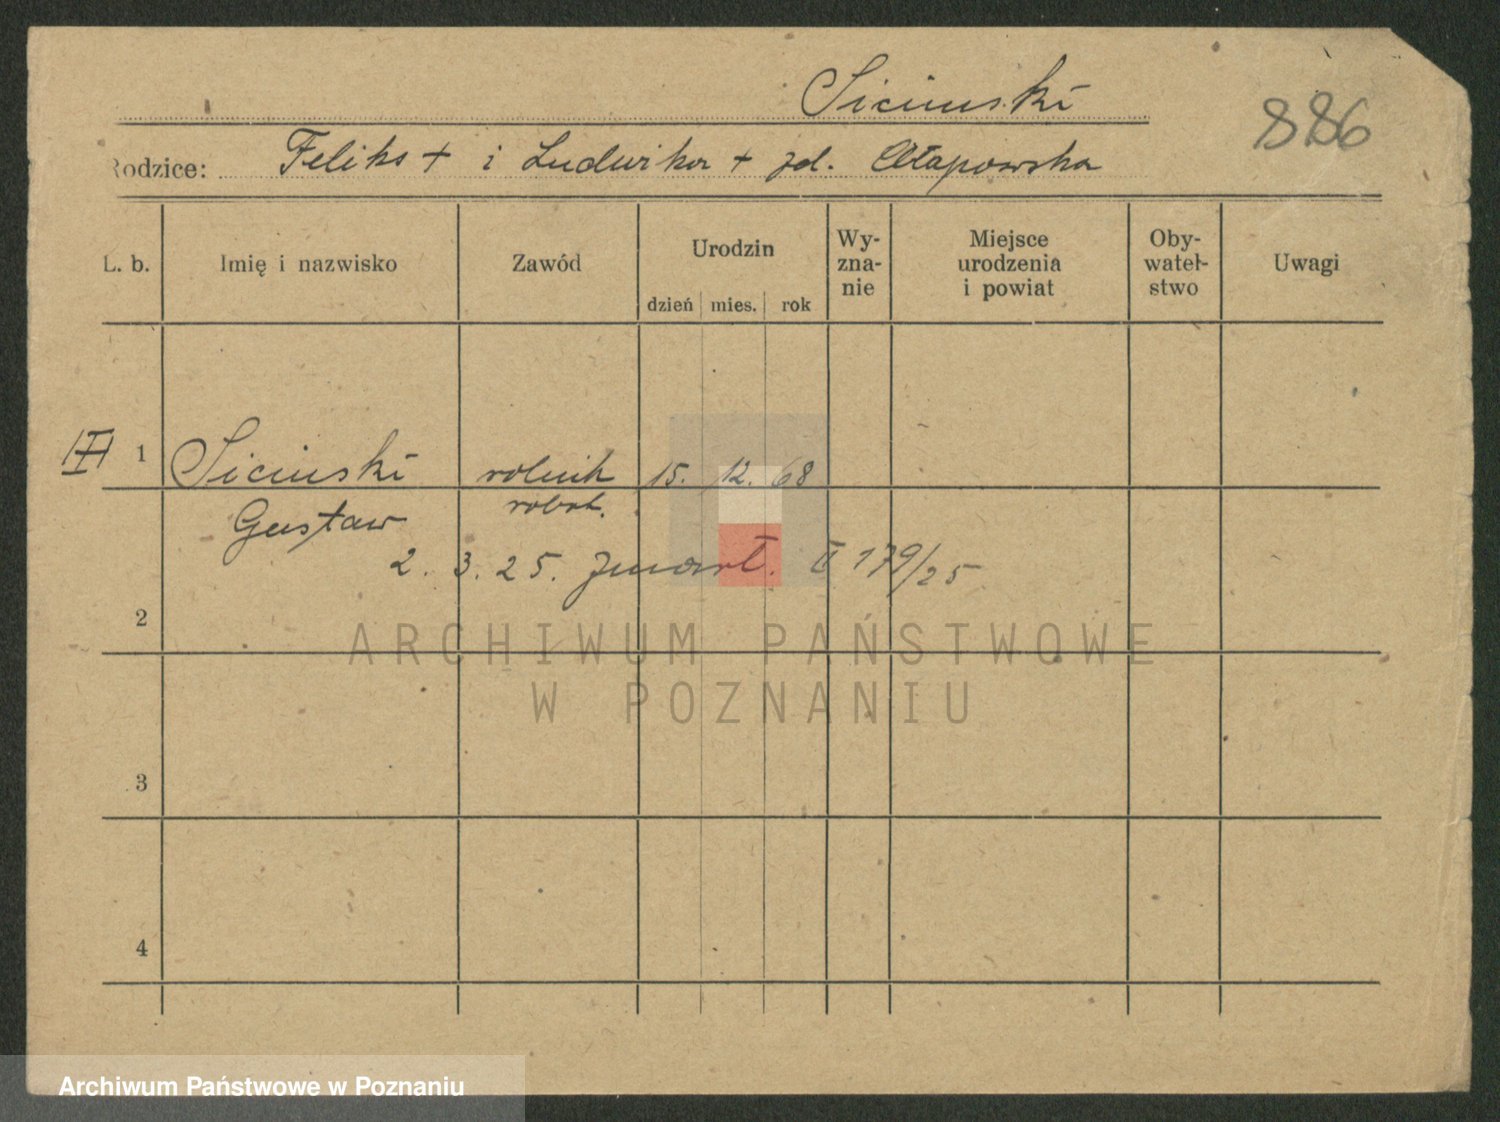 Siciński
886
Rodzice: Feliks + i Ludwika + zd. Chłapowska
L. b. Imię i nazwisko Zawód Urodzin dzień mies. rok Wy-zna-nie Miejsce urodzenia i powiat Oby-watel-stwo Uwagi
1 Siciński rolnik 15. 12. 68
Gustaw robot.
2. 3. 25. zmarł. II 179/25
2
ARCHIWUM PAŃSTWOWE
W POZNANIU
3
4
Archiwum Państwowe w Poznaniu